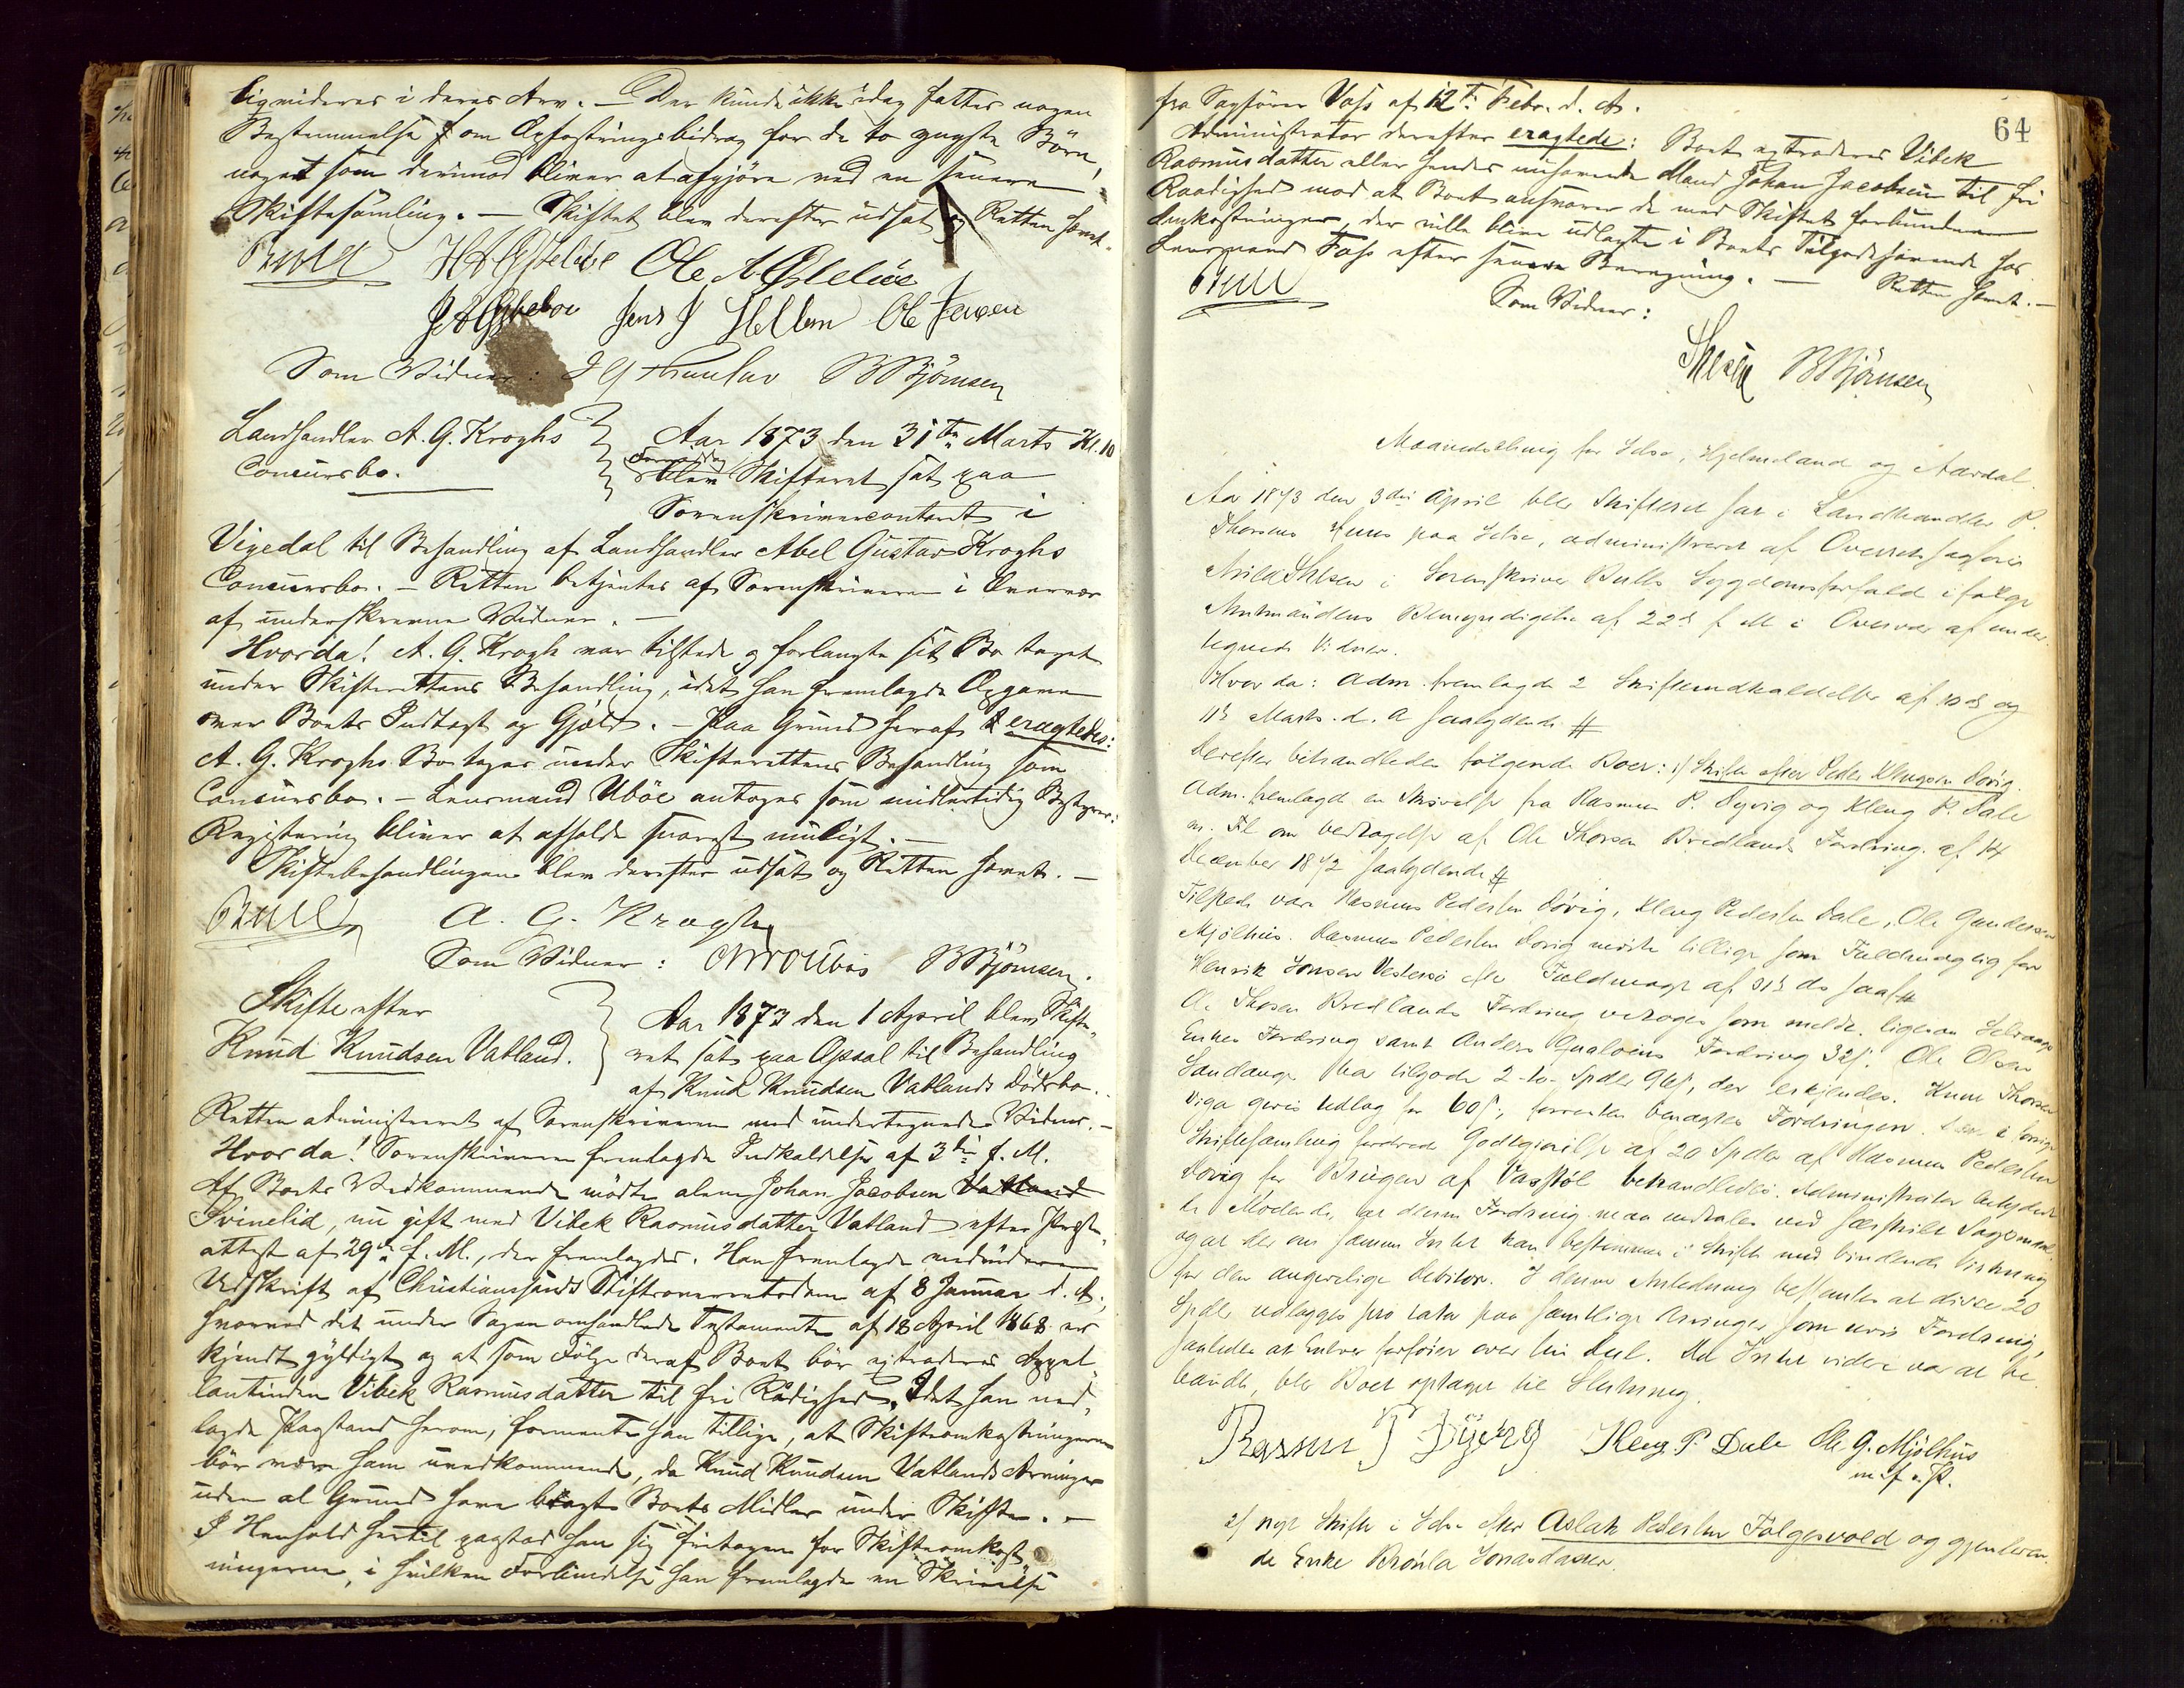 ligvideres i deres Arv. — Der kunde ikke idag fattes nogen
Bestemmelse om Opfostringsbidrag for de to yngste Börn,
noget som derimod bliver at afgjöre ved en senere
Skiftesamling. — Skiftet blev derefter udsat og Retten hævet.
Bull H A Østebøe Ole A Østebøe
J A Østebøe Jens J Hellen Ole Jensen
Som Vidner: B Björnsen
Landhandler A. G. Kroghs
Concursbo.
Aar 1873 den 31te Marts Kl. 10
Formiddag
blev Skifteret sat paa
Sorenskrivercontoret i
Vigedal til Behandling af Landhandler Abel Gustav Kroghs
Concursbo. — Retten betjentes af Sorenskriveren i Overvær
af underskrevne Vidner. —
Hvorda! A. G. Krogh var tilstede og forlangte sit Bo taget
under Skifterettens Behandling, idet han fremlagde Opgave
over Boets Indtægt og Gjæld. — Paa Grund heraf eragtedes:
A. G. Kroghs Bo tages under Skifterettens Behandling som
Concursbo. — Lensmand Ubøe antoges som midlertidig Bestyrer.
Registering bliver at afholde snarest muligt. —
Skiftebehandlingen blev derefter udsat og Retten hævet. —
Bull A. G. Krogh
Som Vidner: B Björnsen.
Skifte efter
Knud Knudsen Vatland.
Aar 1873 den 1 April blev Skifte-
ret sat paa Opsal til Behandling
af Knud Knudsen Vatlands Dödsbo.
Retten administreret af Sorenskriveren med undertegnede Vidner. —
Hvorda! Sorenskriveren fremlagde Indkaldelse af 3die f. M.
Af Boets Vedkommende mödte alene Johan Jacobsen Vatland
Svinelid, nu gift med Vibek Rasmusdatter Vatland efter Præste-
attest af 29de f. M., der fremlagdes. Han fremlagde medvidere
Udskrift af Christianssands Stiftsoverretsdom af 8 Januar d. A.,
hvorved det under Sagen omhandlede Testamente af 18 April 1868 er
kjendt gyldigt og at som Fölge deraf Boet bör extraderes Appel-
lantinden Vibek Rasmusdatter til fri Raadighed. Idet han ned-
lagde Paastand herom, formente han tillige, at Skifteomkostningerne
bör være ham uvedkommende, da Knud Knudsen Vatlands Arvinger
uden al Grund have bragt Boets Midler under Skifte. —
I Henhold hertil paastod han sig fritagen for Skifteomkost-
ningerne, i hvilken Forbindelse han fremlagde en Skrivelse
64
fra Sagförer Vass af 12te Febr. d. A.
Administrator derefter eragtede: Boet extraderes Vibek
Rasmusdatter eller hendes nuhavende Mand Johan Jacobsen til fri
Raadighed mod at Boet ansvarer de med Skiftet forbundne
Omkostninger, der ville blive udlagte i Boets Tilgodehavende hos
Lensmand Foss efter senere Beregning. — Retten hævet. —
Bull
Som Vidner:
B Björnsen
Maanedsthing for Jelse, Hjelmeland og Aardal.
Aar 1873 den 3die April blev Skifteret sat i Landhandler P.
Thorsens Huus paa Jelse, administreret af Overretssagförer
i Sorenskriver Bulls Sygdomsforfald ifølge
Amtmandens Bemyndigelse af 22de f M i Overvær af under-
tegnede Vidner.
Hvor da: Adm. fremlagde 2 Skifteindkaldelser af 10de og
11te Marts d. A saalydende #
Derefter behandledes følgende Boer: 1/ Skifte efter Peder Klengsen Døvig.
Adm. fremlagde en Skrivelse fra Rasmus P. Døyvig og Kleng P. Dale
m. Fl om vedtagelse af Ole Thorsen Bredlands Fordring af 14
December 1872 saalydende #
Tilstede vare Rasmus Pedersen Døvig, Kleng Pedersen Dale, Ole Gundersen
Mjølhus. Rasmus Pedersen Døvig mødte tillige som Fuldmægtig for
Henrik Jonsen Vestersø efter Fuldmagt af 31te ds saal #
Ole Thorsen Bredlands Fordring vedtoges som meldt. ligesom
Enkes Fordring samt Anders Fordring 32ß. Ole Olsen
Sandanger har tilgode 2-to- Spdlr 96ß, der erkjendes. Knud Thorsen
Viga gives Udlag for 60ß, forresten benægtes Fordringen. Den i forrige
Skiftesamling fordrede Godtgjørelse af 20 Spdlr af Rasmus Pedersen
Døvig for Brugen af Vasstöl behandledes. Administrator betydede
de Mødende, at denne Fordring maa indtales ved særskilt Sagsmaal
og at der om samme Intet kan bestemmes i Skiftet med bindende Virkning
for den angivelige Debitor. I denne Anledning besluttedes at disse 20
Spdlr udlægges pro rata paa samtlige Arvinger som uvis Fordring,
saaledes at Enhver forføier over sin Deel. Da Intet videre var at be-
handle, blev Boet optaget til Slutning.
Rasmus P Döyvig Kleng P. Dale Ole G. Mjölhus
m. f. P.
2/ nyt Skifte i Jelse efter Aslak Pedersen Folgesvold og gjenleven-
de Enke Jonasdatter.